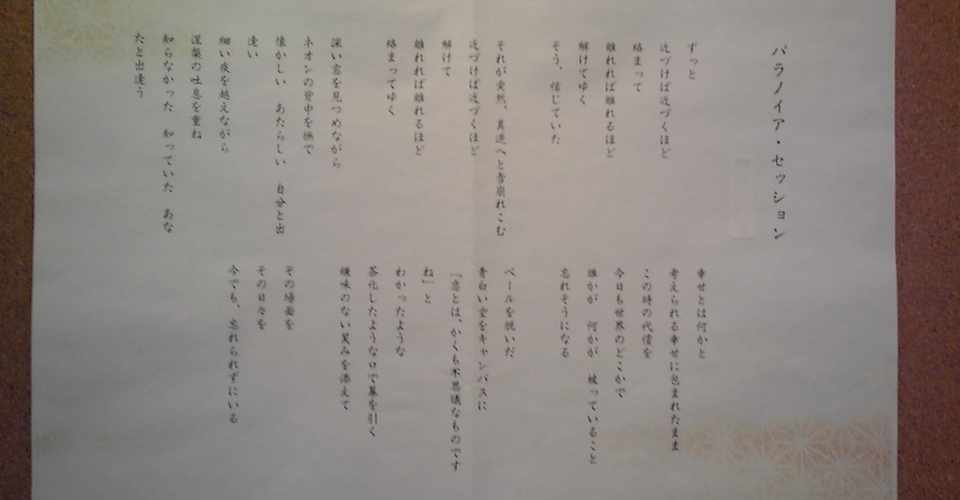 パラノイア・セッション
ずっと
近づけば近づくほど
絡まって
離れれば離れるほど
解けてゆく
そう、信じていた
それが突然、真逆へと雪崩れこむ
近づけば近づくほど
解けて
離れれば離れるほど
絡まってゆく
深い窓を見つめながら
ネオンの背中を撫で
懐かしい　あたらしい　自分と出
逢い
細い夜を越えながら
涅槃の吐息を重ね
知らなかった　知っていた　あな
たと出逢う
幸せとは何かと
考えられる幸せに包まれたまま
この時の代償を
今日も世界のどこかで
誰かが　何かが　被っていること
忘れそうになる
ベールを脱いだ
青白い愛をキャンバスに
「恋とは、かくも不思議なものです
ね」と
わかったような
茶化したような口で幕を引く
嫌味のない笑みを添えて
その場面を
その日々を
今でも、忘れられずにいる